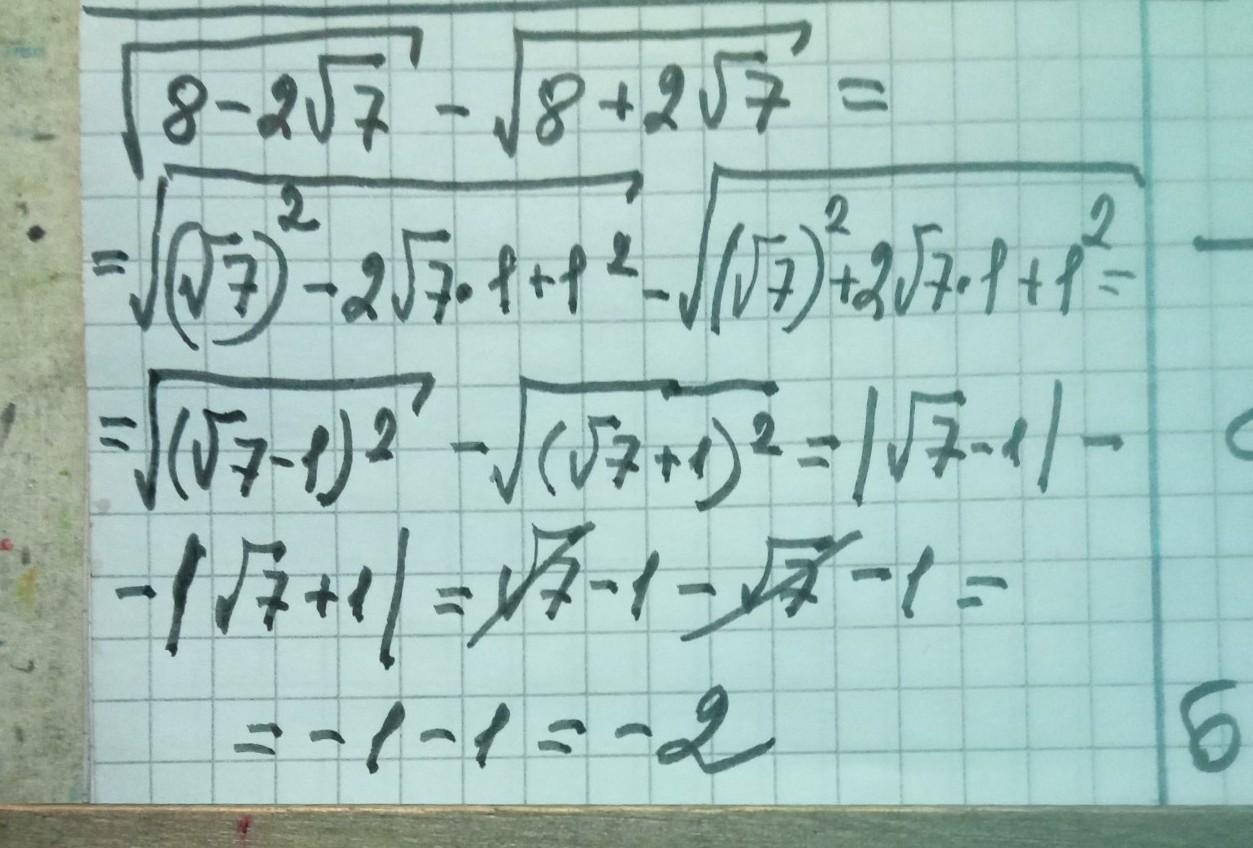 √(8-2√7) - √(8+2√7) =
=√((√7)²-2√7·1+1²) - √((√7)²+2√7·1+1²) =
=√((√7-1)²) - √((√7+1)²) = |√7-1| -
-|√7+1| = √7-1-√7-1 =
= -1-1 = -2
5